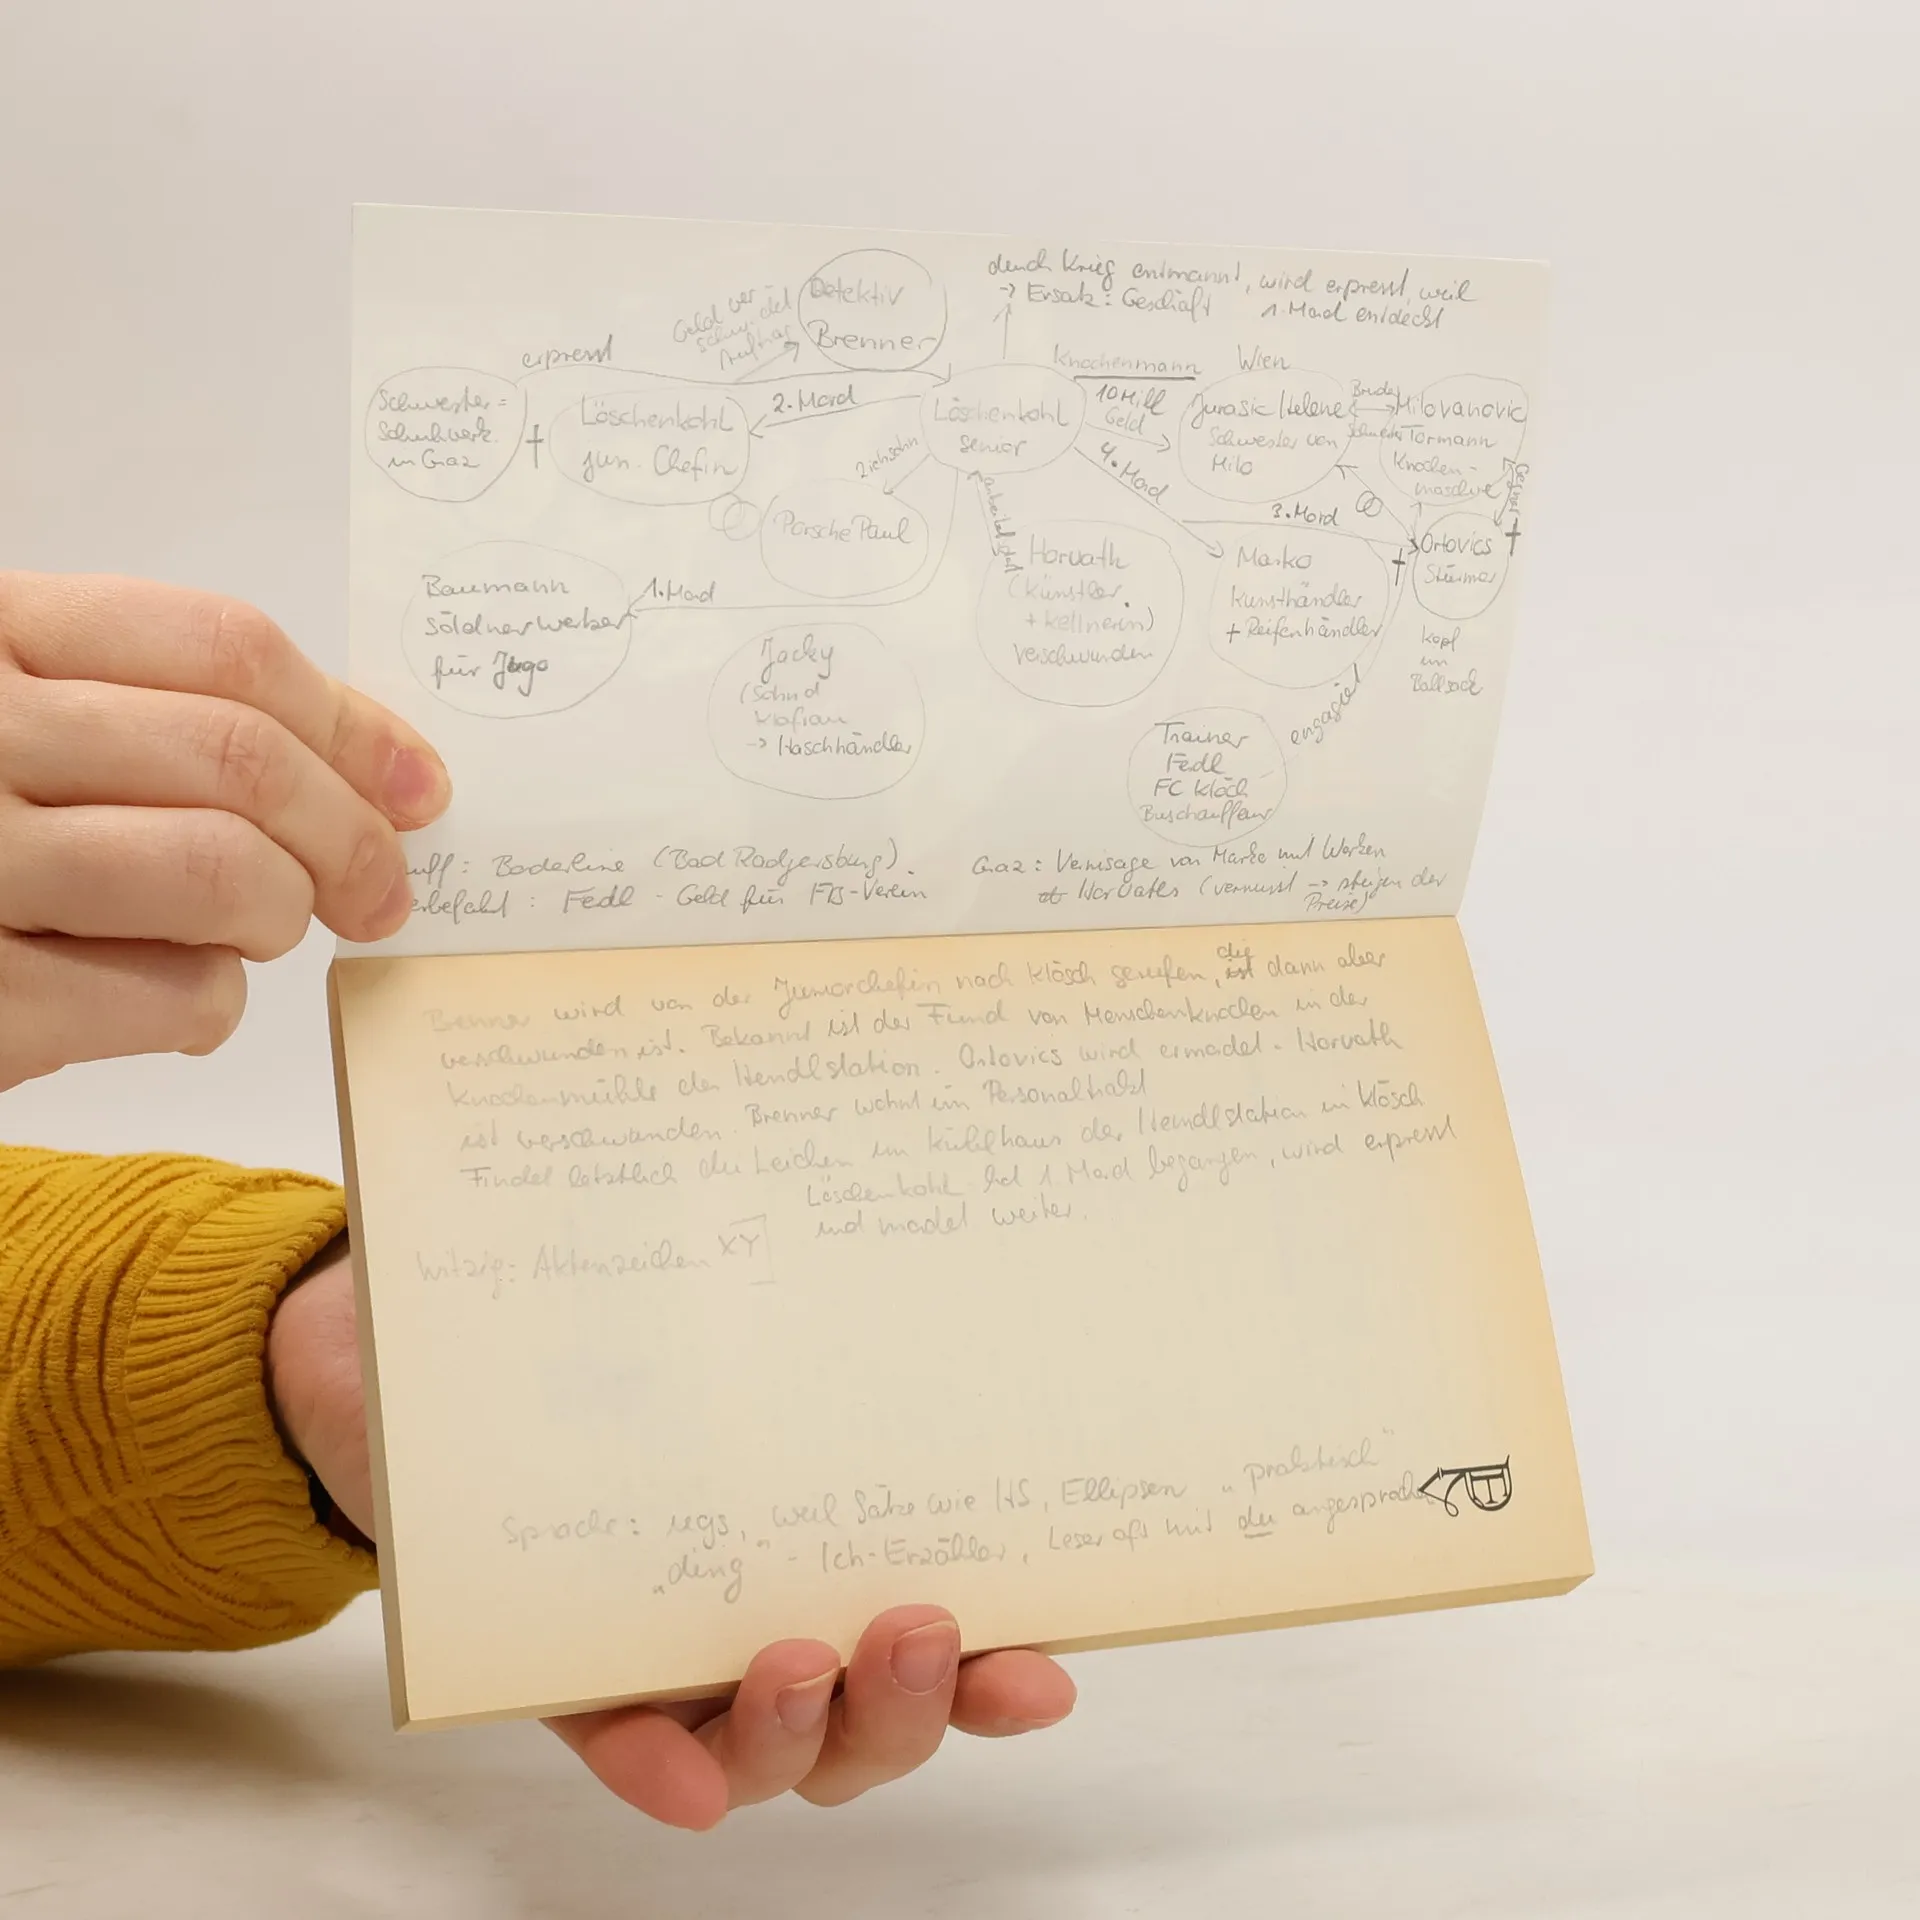 durch Krieg entmannt, wird erpresst, weil
→ Ersatz: Geschäft 1. Mord entdeckt
Detektiv
Brenner
Geld ver-
schw. det
Auftrag
erpresst
Schwester =
Schuhverk.
in Graz
Löschenkohl
jun. Chefin
2. Mord
Löschenkohl
senior
Knochenmann
10 Mill
Geld
Wien
Jurasic Helene
Schwester von
Milo
Bruder
Schwester
Milovanovic
Tormann
Knochen-
maschine
Gegner
4. Mord
3. Mord
Ziehsohn
Porsche Paul
arbeitet
Horvath
(Künstler
+ Kellnerin)
verschwunden
Marko
Kunsthändler
+ Reifenhändler
Ortovics
Stürmer
Kopf
im
Ballsack
Baumann
Söldnerwerber
für Jugo
1. Mord
Jacky
→ Haschhändler
Trainer
Fedl
FC Klöch
Buschauffeur
engagiert
Borderline (Bad Radgersburg)
Fedl - Geld für FB-Verein
Graz: Vernisage von Marko mit Werken
Horvaths (vermisst → steigen der
Preise)
Brenner wird von der Juniorchefin nach Klösch gerufen, die dann aber
verschwunden ist. Bekannt ist der Fund von Menschenknochen in der
Knochenmühle der Hendlstation. Ortovics wird ermordet. Horvath
ist verschwunden. Brenner wohnt im Personaltrakt
Findet letztlich die Leichen im Kühlhaus der Hendlstation in Klösch
Löschenkohl hat 1. Mord begangen, wird erpresst
und mordet weiter.
Witzig: Aktenzeichen XY
Sprache: ugs, weil Sätze wie HS, Ellipsen „praktisch“
„ding“ - Ich-Erzähler, Leser oft mit du angesprochen